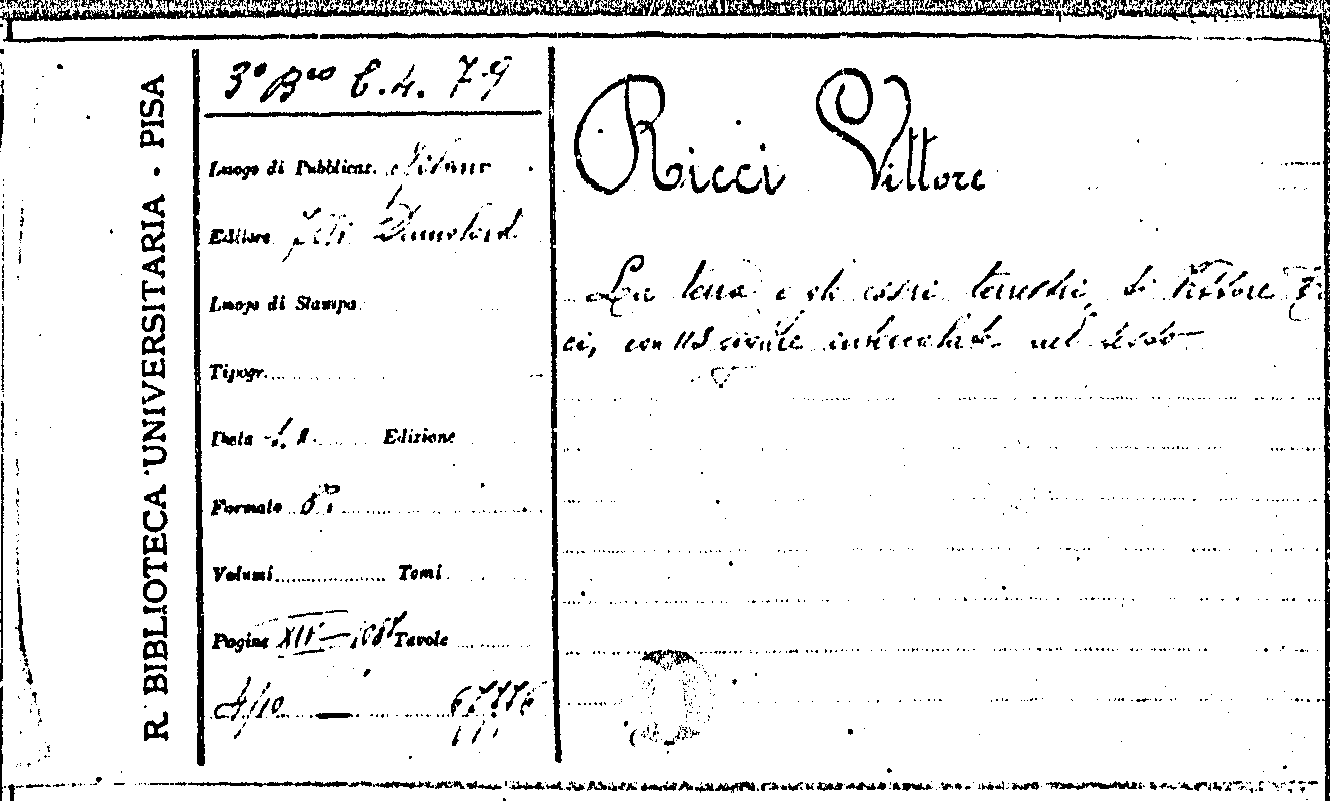 R. BIBLIOTECA UNIVERSITARIA - PISA
3º Bco E. 4. 7-9
Luogo di Pubblicaz. Milano
Editore F.lli Dumolard
Luogo di Stampa
Tipogr.
Data s. a. Edizione
Formato 8º
Volumi Tomi
Pagine XIV- Tavole
A/10
Ricci Vittore
La terra e gli esseri terrestri, di Vittore Ric
ci, con 118 intercalate nel testo